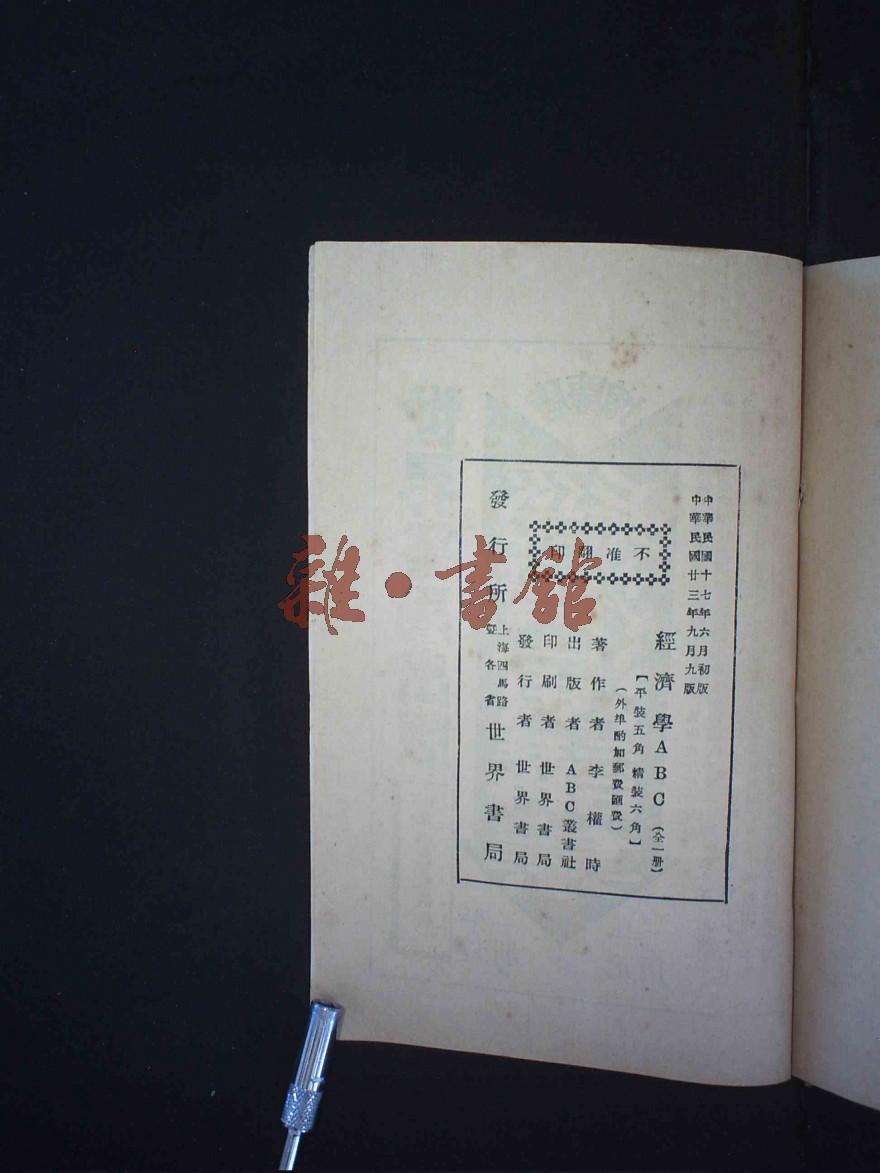 中華民國十七年六月初版
中華民國廿三年九月九版
經濟學ABC（全一册）
【平裝五角 精裝六角】
（外埠酌加郵費匯費）
不准翻印
著作者 李權時
出版者 ABC叢書社
印刷者 世界書局
發行者 世界書局
發行所 上海四馬路暨各省 世界書局
雜·書館